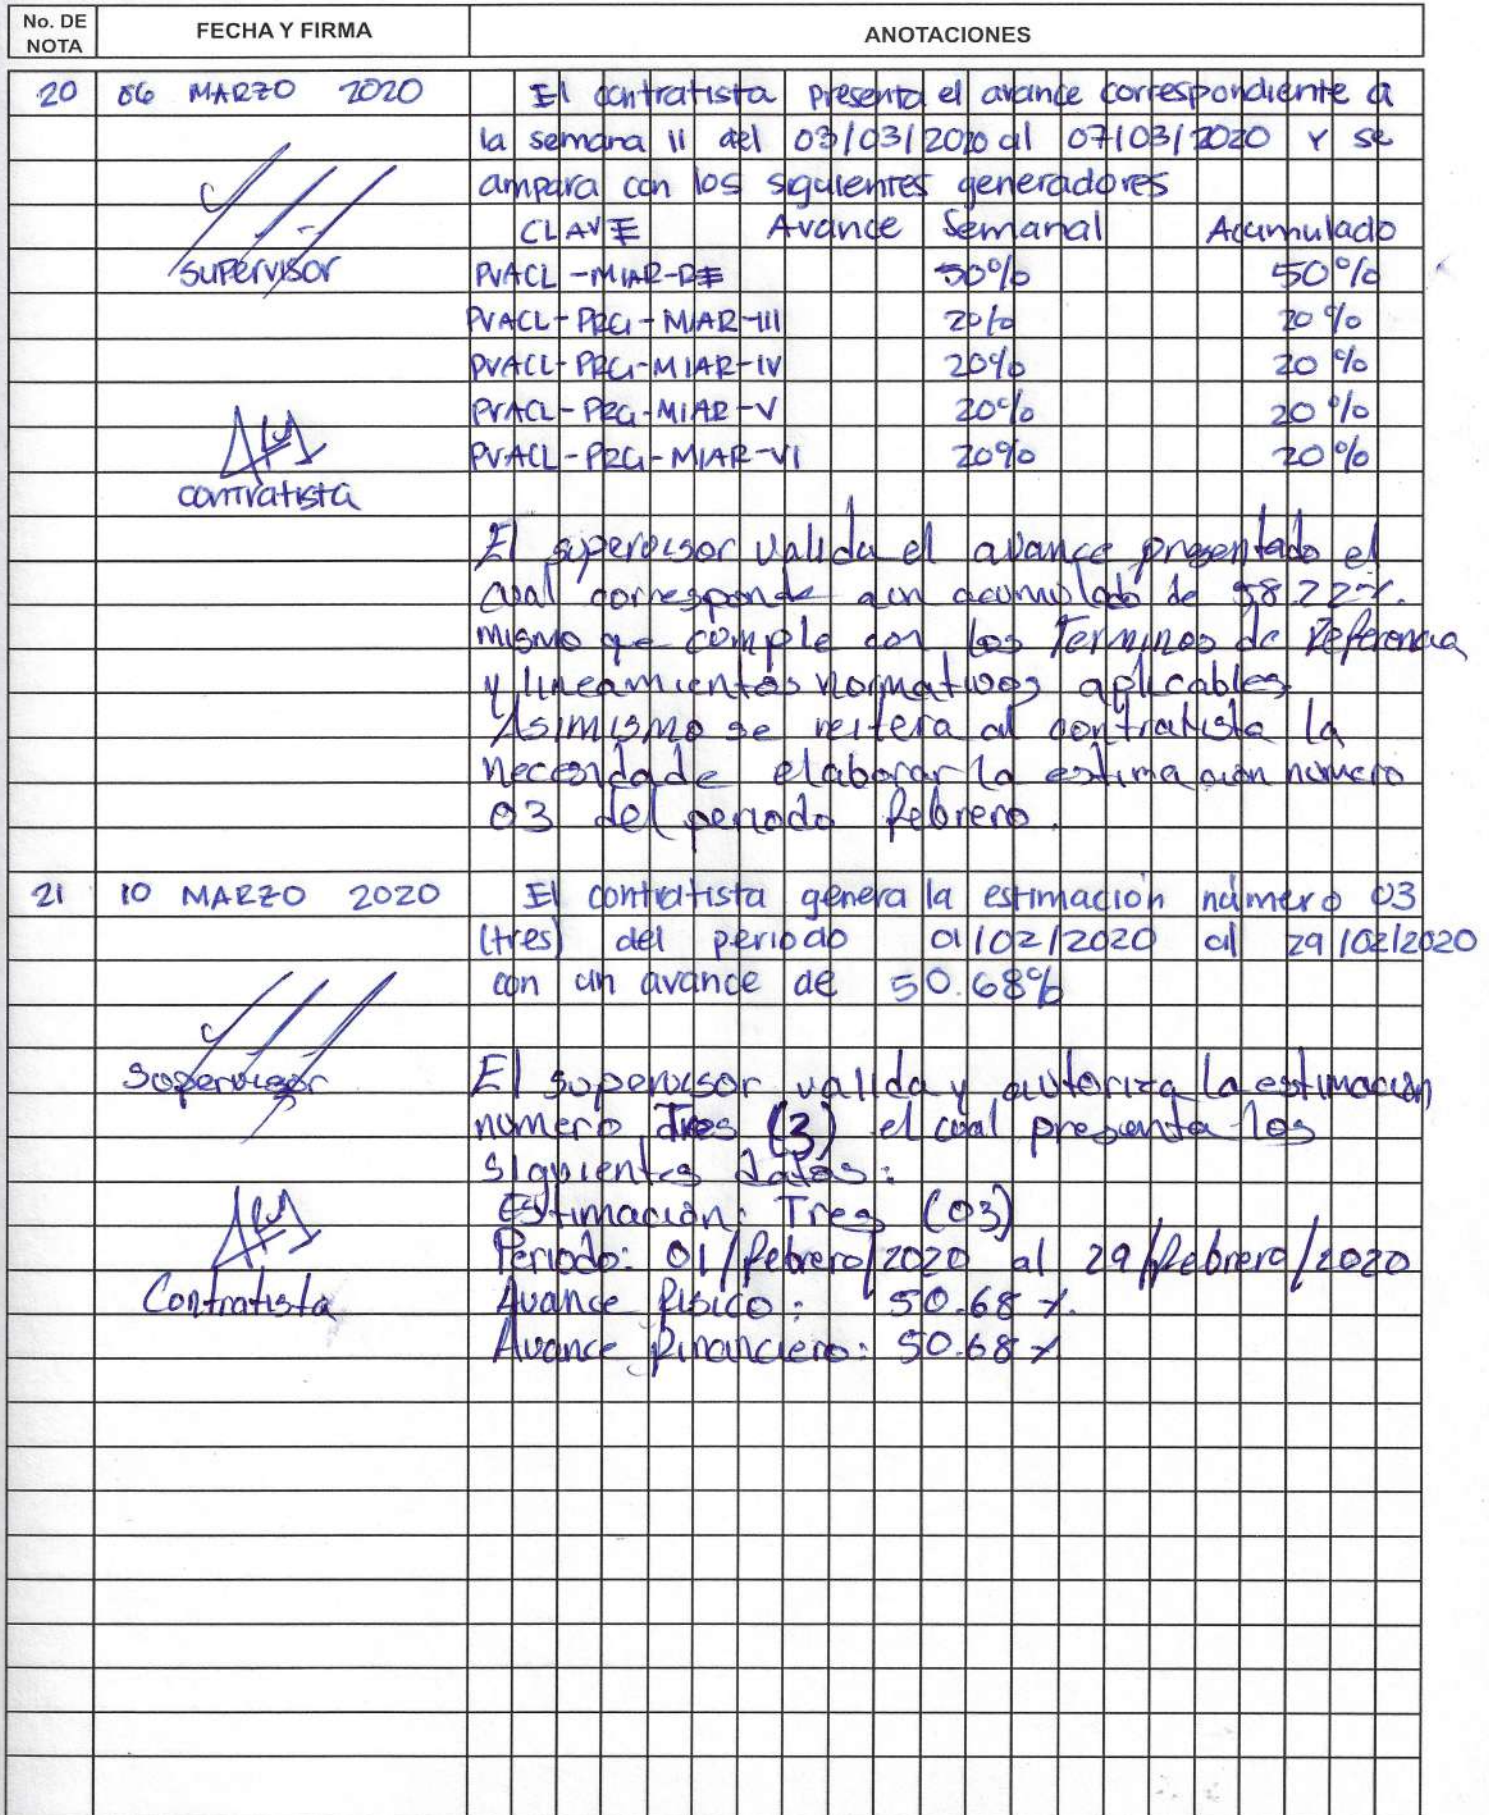 No. DE NOTA FECHA Y FIRMA ANOTACIONES
20 06 MARZO 2020 El contratista presenta el avance correspondiente a
la semana 11 del 03/03/2020 al 07/03/2020 y se
ampara con los siguientes generadores
CLAVE Avance Semanal Acumulado
supervisor PVACL-MIAR-RE 50% 50%
PVACL-PRG-MIAR-III 20% 20%
PVACL-PRG-MIAR-IV 20% 20%
PVACL-PRG-MIAR-V 20% 20%
PVACL-PRG-MIAR-VI 20% 20%
contratista
El supervisor valida el avance presentado el
cual corresponde a un acumulado de 58.22%.
mismo que cumple con los Terminos de Referencia
y lineamientos normativos aplicables
Asimismo se reitera al contratista la
elaborar la estimación numero
03 del periodo febrero.
21 10 MARZO 2020 El contratista genera la estimación número 03
(tres) del periodo 01/02/2020 al 29/02/2020
con un avance de 50.68%
Supervisor El supervisor valida y autoriza la estimación
numero Tres (3) el cual presenta los
siguientes datos:
Estimación: Tres (03)
Periodo: 01/febrero/2020 al 29/febrero/2020
Contratista Avance fisico: 50.68%.
Avance financiero: 50.68%